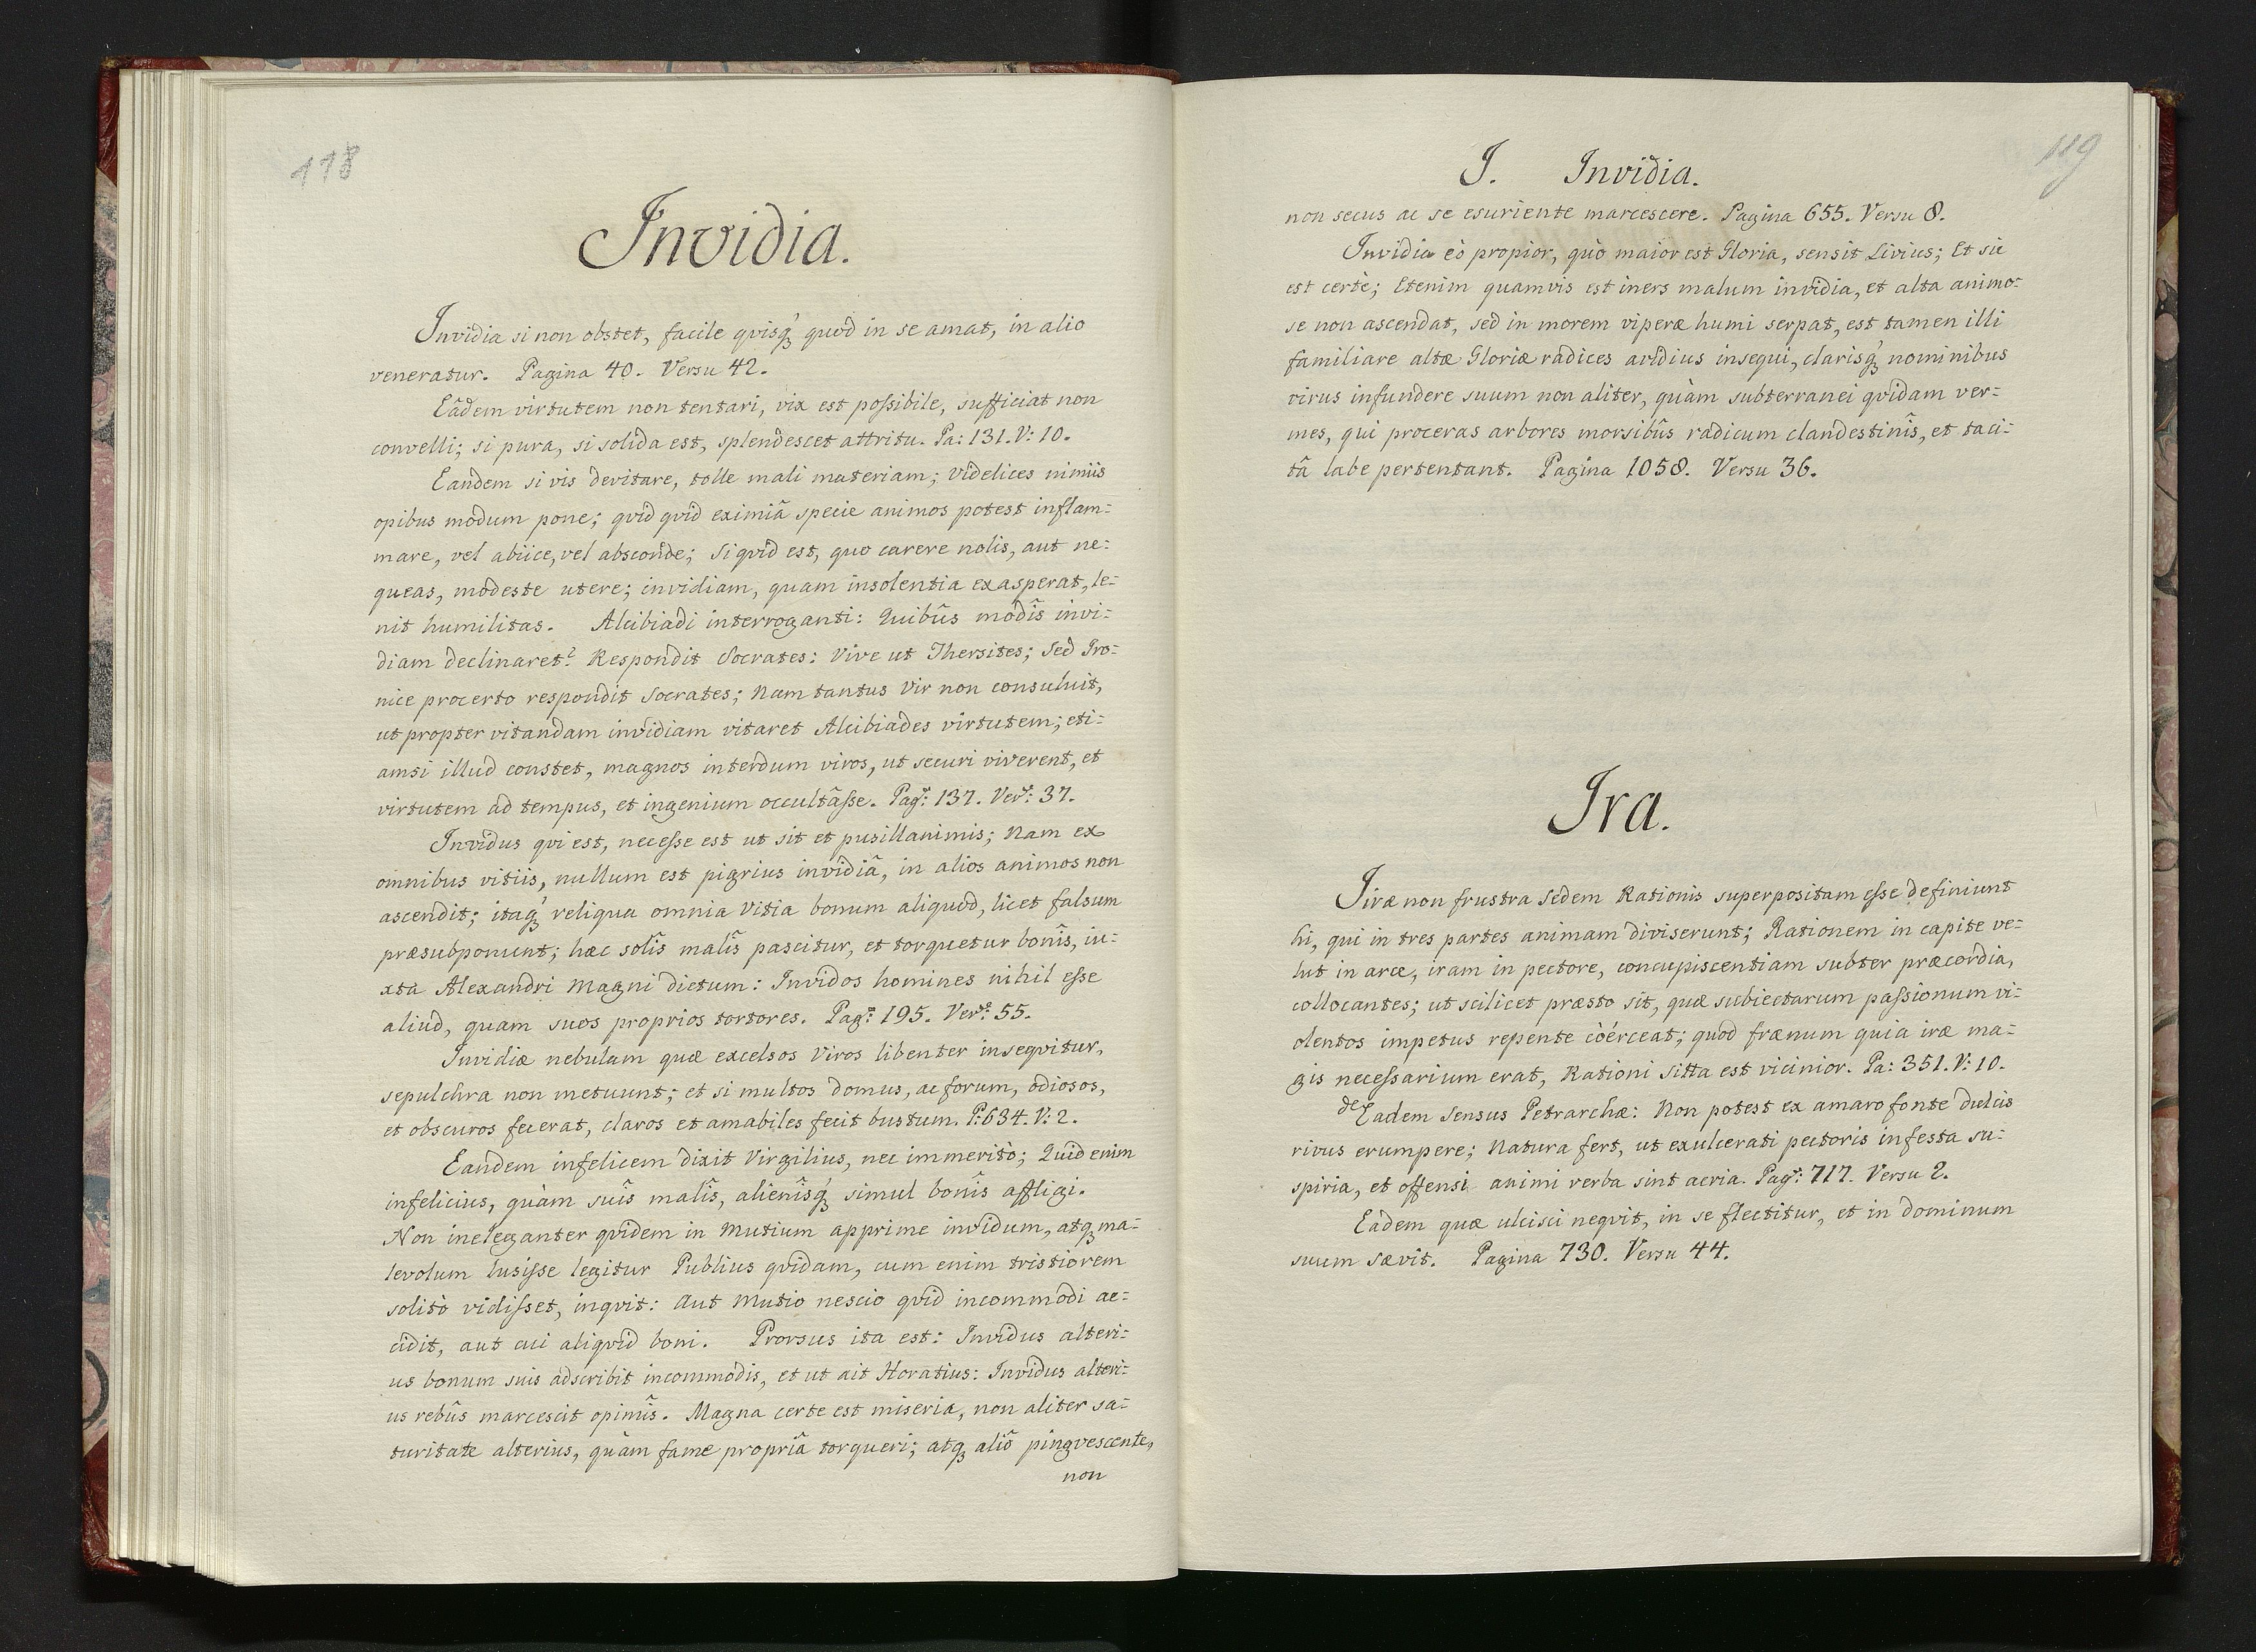 118
Invidia.
Invidia si non obstet, facile qvisq́ꝫ quod in se amat, in alio
veneratur. Pagina 40. Versu 42.
Eâdem virtutem non tentari, vix est poſsibile, sufficiat non
convelli; si pura, si solida est, splendescet attritu. Pa: 131. V: 10.
Eandem si vis devitare, tolle mali materiam; Videlices nimiis
opibus modum pone; qvid qvid eximiâ specie animos potest inflam=
mare, vel abiice, vel absconde; Si qvid est, quo carere nolis, aut ne=
queas, modeste utere; invidiam, quam insolentia exasperat, le=
nit humilitas. Alcibiadi interroganti: Quibûs modîs invi=
diam declinaret? Respondit Socrates: Vive ut Thersites; Sed Iro=
nice procerto respondit Socrates; Nam tantus Vir non consuluit,
ut propter vitandam invidiam vitaret Alcibiades virtutem; eti=
amsi illud constet, magnos interdum viros, ut securi viverent, et
virtutem ad tempus, et ingenium occultâſse. Pagᵃ: 137. Verᵘ: 37.
Invidus qvi est, neceſse est ut sit et pusillanimis; Nam ex
omnibus vitiis, nullum est pigrius invidiâ, in alios animos non
ascendit; itaq́ꝫ reliqua omnia Vitia bonum aliquod, licet falsum
præsubponunt; hæc solîs malîs pascitur, et torquetur bonîs, iu=
xta Alexandri Magni dictum: Invidos homines nihil eſse
aliud, quam suos proprios tortores. Pagᵃ: 195. Verᵘ: 55.
Invidiæ nebulam quæ excelsos Viros libenter inseqvitur,
sepulchra non metuunt; et si multos domus, ac forum, odiosos,
et obscuros fecerat, claros et amabiles fecit bustum. P: 634. V: 2.
Eandem infelicem dixit Virgilius, nec immeritò; Quid enim
infelicius, quàm suîs malîs, alienîsq́ꝫ simul bonîs affligi.
Non ineleganter qvidem in Mutium apprime invidum, atqꝫ ma=
levolum lusiſse legitur Publius qvidam, cum enim tristiorem
solitò vidiſset, inqvit: Aut Mutio nescio qvid incommodi ac=
cidit, aut cui aliqvid boni. Prorsus ita est: Invidus alteri=
us bonum suis adscribit incommodis, et ut ait Horatius: Invidus alteri=
us rebûs marcescit opimîs. Magna certe est miseria, non aliter sa=
turitate alterius, quàm fame propriâ torqueri; atqꝫ aliô pingvescente,
non
119
I. Invidia.
non secus ac se esuriente marcescere. Pagina 655. Versu 8.
Invidia eò propior, quò maior est Gloria, sensit Livius; Et sic
est certè; Etenim quamvis est iners malum invidia, et alta animo=
se non ascendat, sed in morem viperæ humi serpat, est tamen illi
familiare altæ Gloriæ radices avidius insequi, clarisq́ꝫ nominibus
virus infundere suum non aliter, quàm subterranei qvidam ver=
mes, qui proceras arbores morsibûs radicum clandestinîs, et taci=
tâ labe pertentant. Pagina 1058. Versu 36.
Ira.
Iiræ non frustra Sedem Rationis superpositam eſse definiunt
hi, qui in tres partes animam diviserunt; Rationem in capite ve=
lut in arce, iram in pectore, concupiscentiam subter præcordia,
collocantes; ut scilicet præsto sit, quæ subiectarum paſsionum vi=
olentos impetus repente còérceat; quod frænum quia iræ ma=
gis neceſsarium erat, Rationi sitta est vicinior. Pa: 351. V: 10.
de Eadem Sensus Petrarchæ: Non potest ex amaro fonte dulcis
rivus erumpere; Natura fert, ut exulcerati pectoris infesta su=
spiria, et offensi animi verba sint acria. Pagᵃ: 717. Versu 2.
Eadem quæ ulcisci neqvit, in se flectitur, et in dominum
suum sævit. Pagina 730. Versu 44.